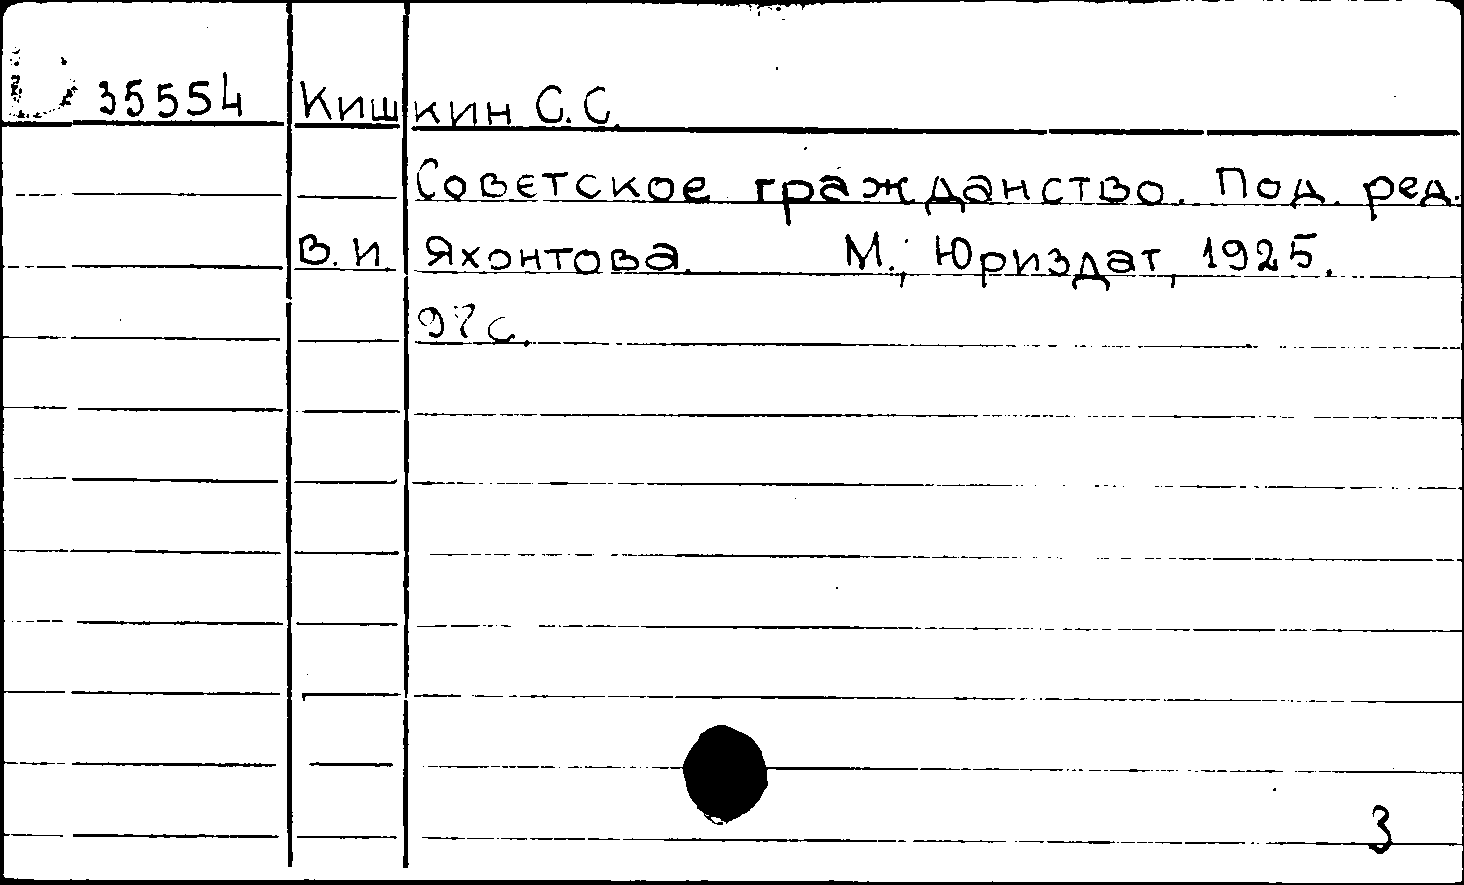 D 35554 Кишкин С.С.
Советское гражданство. Под. ред.
В.И. Яхонтова. М.; Юриздат, 1925.
97 с.
3